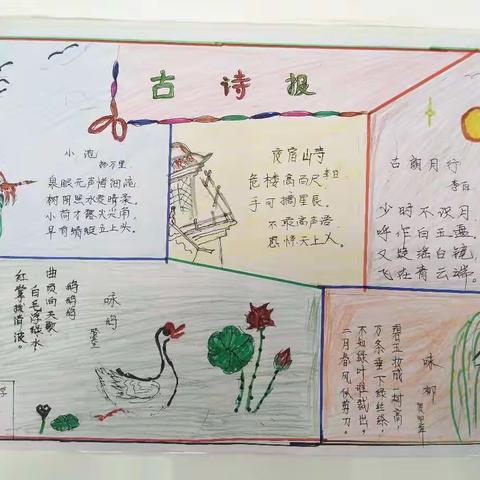 古诗报
小池
杨万里
泉眼无声惜细流,
树阴照水爱晴柔。
小荷才露尖尖角,
早有蜻蜓立上头。
夜宿山寺
李白
危楼高百尺,
手可摘星辰。
不敢高声语,
恐惊天上人。
古朗月行
李白
少时不识月,
呼作白玉盘。
又疑瑶台镜,
飞在青云端。
咏鹅
鹅鹅鹅
曲项向天歌
白毛浮绿水,
红掌拨清波。
咏柳
贺知章
碧玉妆成一树高,
万条垂下绿丝绦,
不知绿叶谁裁出,
二月春风似剪刀。